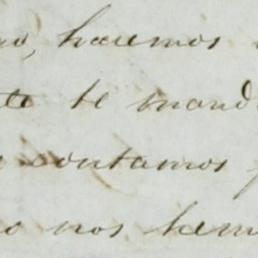 no, hacemos
te te mand
contamos
o nos hem